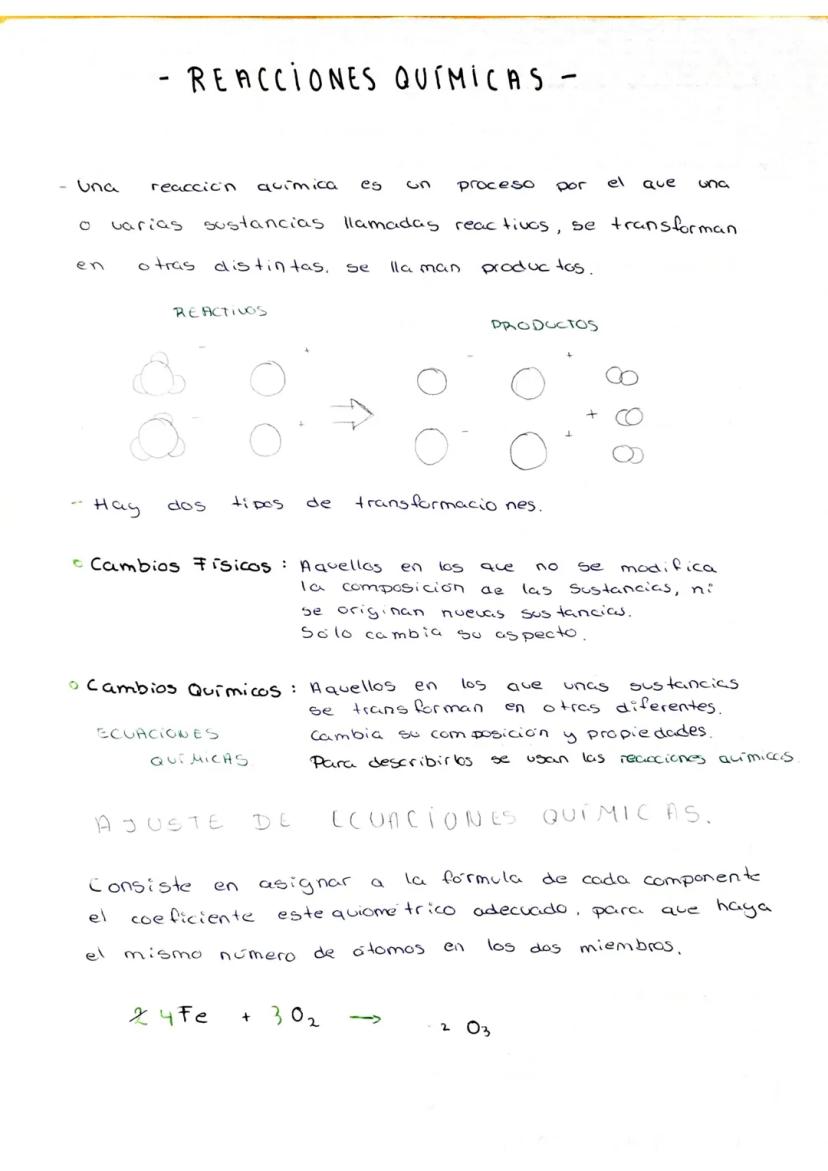 - REACCIONES QUÍMICAS -
- Una reacción química es un proceso por el que una
o varias sustancias llamadas reactivos, se transforman
en otras distintas, se llaman productos.
REACTIVOS
PRODUCTOS
- + - +
- + - + +
- Hay dos tipos de transformaciones.
Cambios Físicos : Aquellos en los que no se modifica
la composición de las sustancias, ni
se originan nuevas sustancias.
Sólo cambia su aspecto.
Cambios Químicos : Aquellos en los que unas sustancias
se transforman en otras diferentes.
ECUACIONES Cambia su composición y propiedades.
QUÍMICAS Para describirlos se usan las reacciones químicas.
AJUSTE DE ECUACIONES QUÍMICAS.
Consiste en asignar a la fórmula de cada componente
el coeficiente estequiométrico adecuado, para que haya
el mismo número de átomos en los dos miembros.
2 4Fe + 3O2 → 2 O3